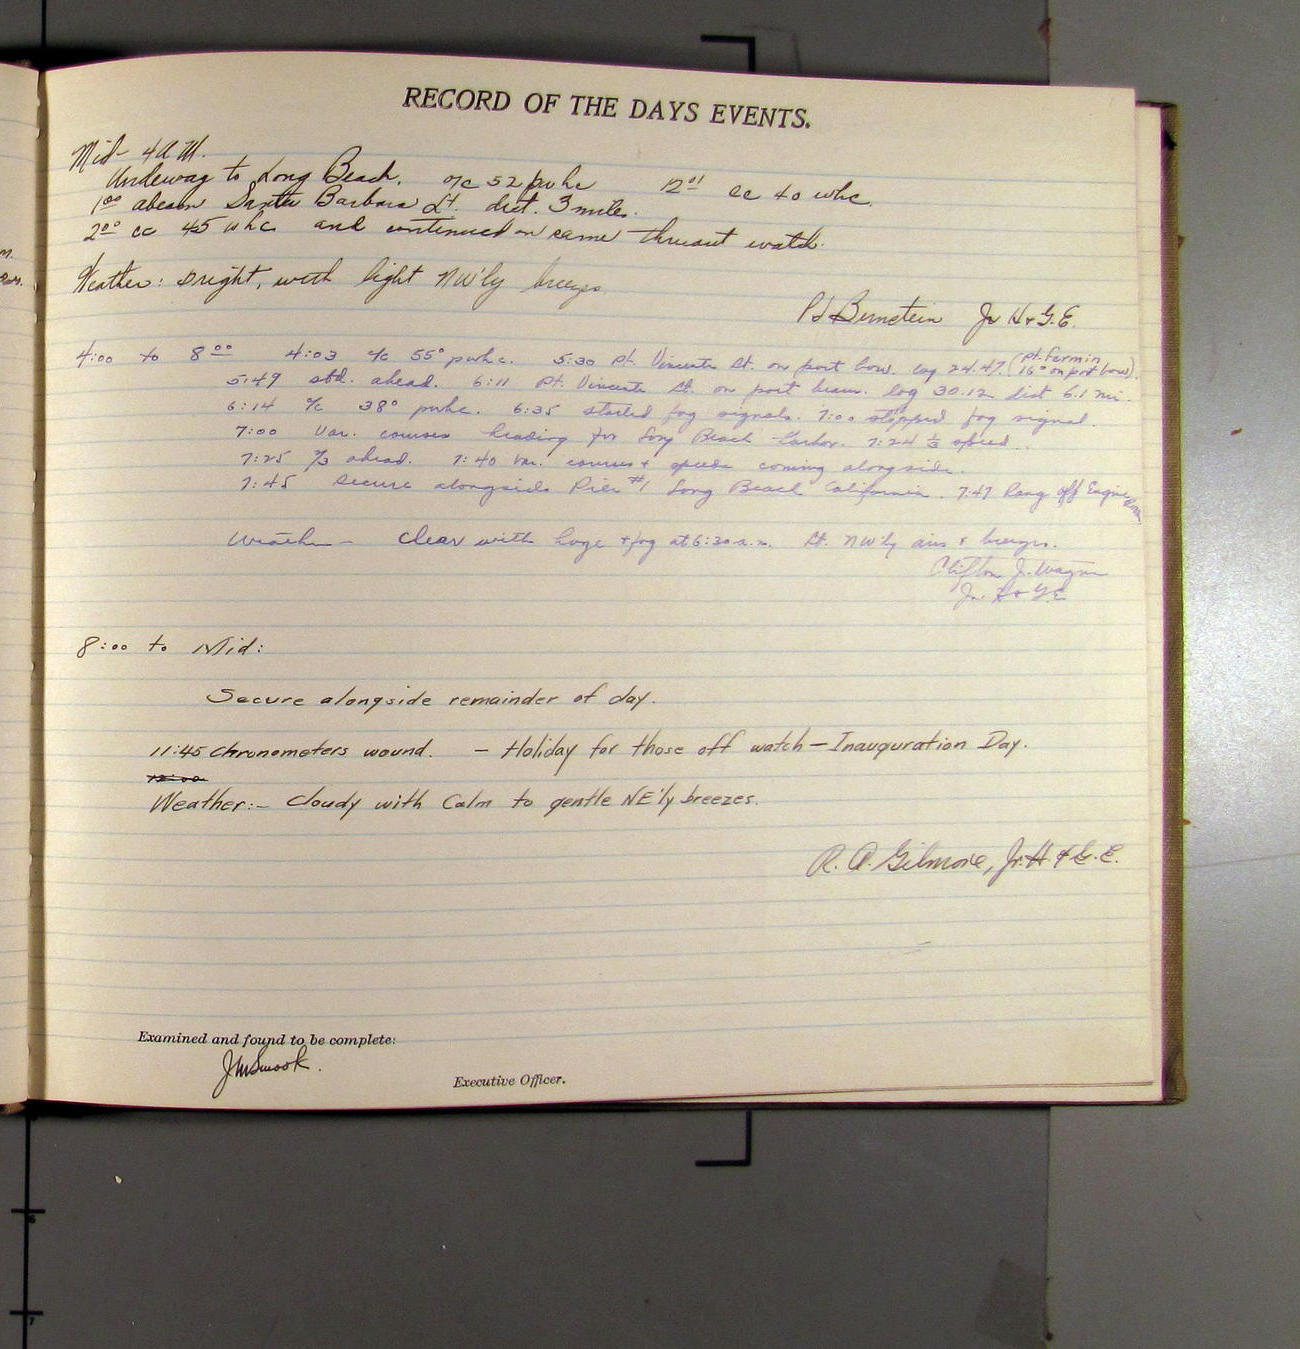 RECORD OF THE DAYS EVENTS.
Mid- 4 A.M.
Underway to Long Beach. o/c 52 pwhc 12⁰¹ cc 40 whc.
1⁰⁰ abeam Santa Barbara Lt. dist. 3 miles.
2⁰⁰ cc 45 whc and continued on same thruout watch.
Weather: Bright, with light NW'ly breezes
Bernstein Jr H & G.E.
4:00 to 8⁰⁰ 4:03 c/c 55° pwhc. 5:30 Pt. Vincente Lt. on port bow. log 24.47. (Pt. Fermin
16° on port bow).
5:49 std. ahead. 6:11 Pt. Vincente Lt. on port beam. log 30.12 dist 6.1 mi.
6:14 c/c 38° pwhc. 6:35 started fog signals. 7:00 stopped fog signal.
7:00 Var. courses heading for Long Beach Harbor. 7:24 ⅓ speed.
7:25 ⅔ ahead. 7:40 Var. courses & speeds coming alongside.
7:45 Secure alongside Pier #1 Long Beach California. 7:47 Rang off Engine Room
Weather - Clear with haze & fog at 6:30 a.m. Lt. NW'ly airs & breezes.
Clifton J. Wagner
Jr. H & G.E.
8:00 to Mid:
Secure alongside remainder of day.
11:45 Chronometers wound. - Holiday for those off watch - Inauguration Day.
Weather:- Cloudy with Calm to gentle NE'ly breezes.
R. A. Gilmore, Jr. H & G. E.
Examined and found to be complete:
JMSmook.
Executive Officer.
5
7